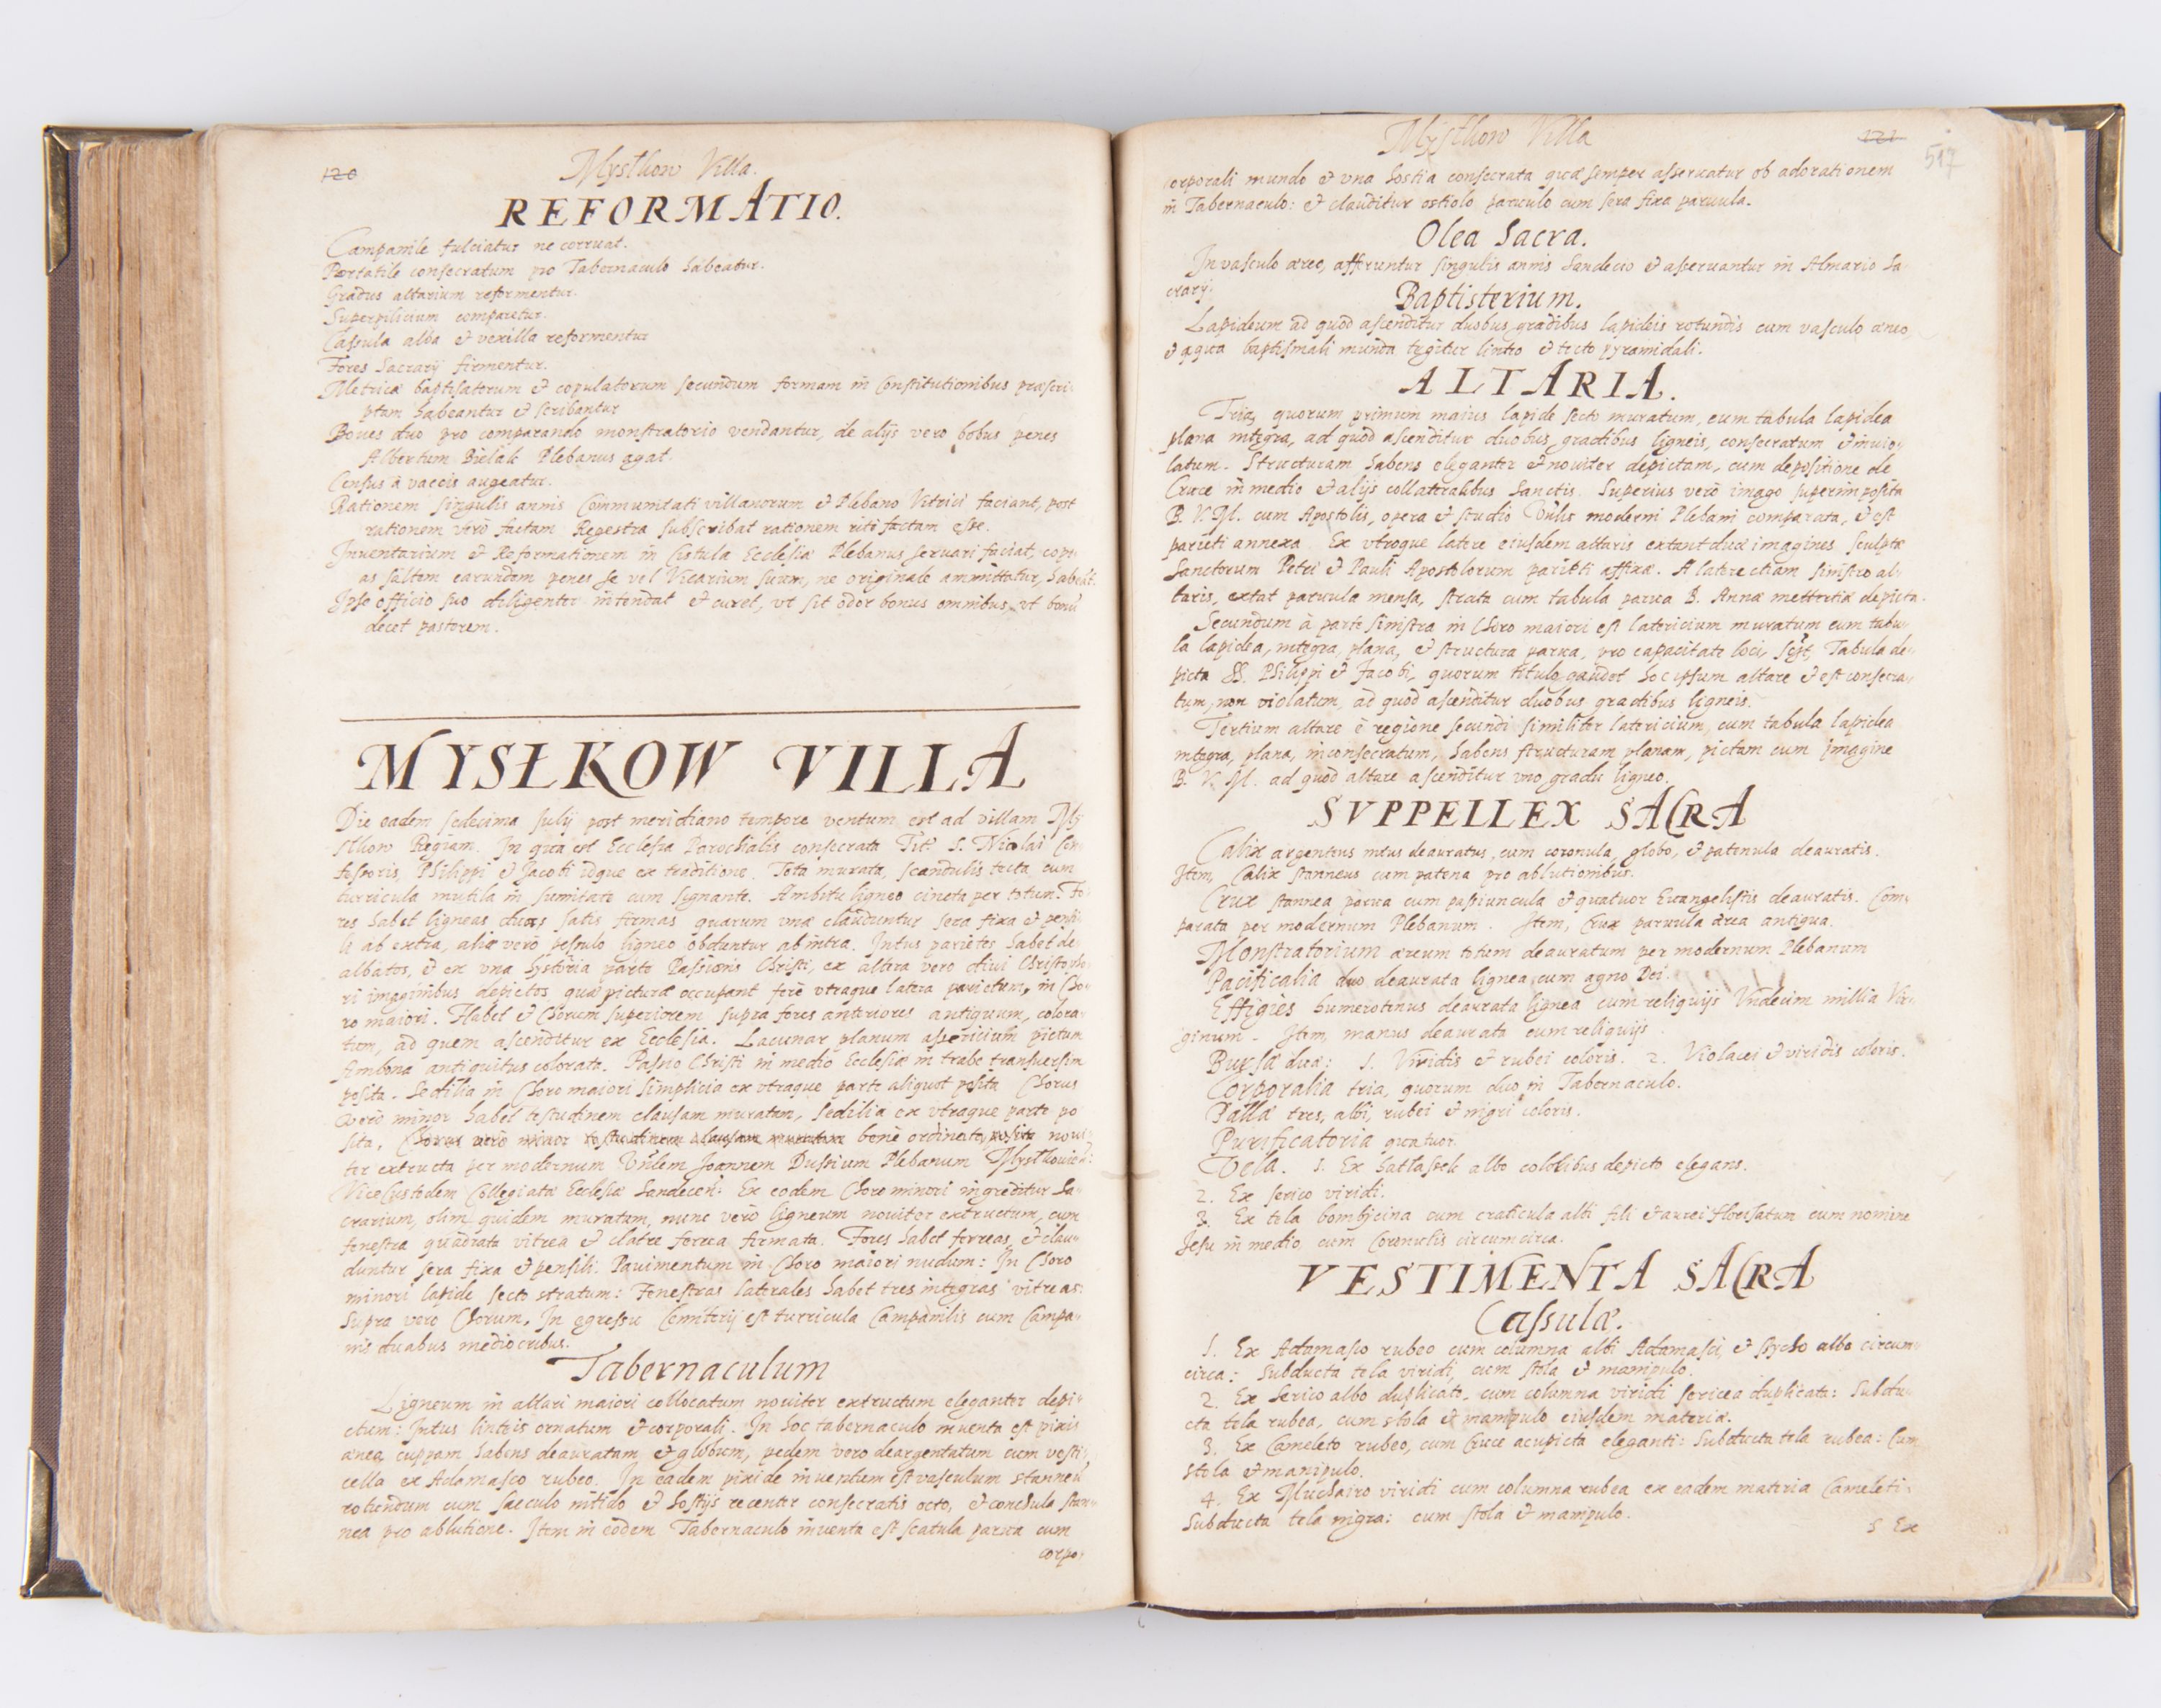 120
Mysłkow Villa.
REFORMATIO.
Campanile fulciatur ne corruat.
Portatile consecratum pro Tabernaculo habeatur.
Gradus altarium reformentur.
Superpilicium comparetur.
Cassula alba & vexilla reformentur
Fores Sacrarij firmentur.
Metricæ baptisatorum & copulatorum secundum formam in Constitutionibus præscri-
ptam habeantur & scribantur
Boues duo pro comparando monstratorio vendantur, de alijs vero bobus penes
Albertum Bielak Plebanus agat.
Census à vaccis augeatur.
Rationem singulis annis Communitati villanorum & Plebano Vitrici faciant, post
rationem verò factam Regestra subscribat rationem ritè factam esse.
Inventarium & Reformationem in Cistula Ecclesiæ Plebanus seruari faciat, copi-
as saltem earundem penes se vel Vicarium suum, ne originale ammittatur, habeat.
Ipse officio suo diligenter intendat & curet, vt sit odor bonus omnibus, vt bonū
decet pastorem.
MYSŁKOW VILLA
Die eadem sedecima Julij post meridiano tempore ventum est ad villam My-
słkow Regiam. In qua est Ecclesia Parochialis consecrata Tit: S. Nicolai Con-
fessoris, Philippi & Jacobi idque ex traditione. Tota murata, scandulis tecta cum
turricula mutila in sumitate cum signante. Ambitu ligneo cincta per totum. Fo-
res habet ligneas duas satis firmas quarum vna clauduntur sera fixa & pensi-
li ab extra, aliæ verò pessulo ligneo obduntur ab intra. Intus parietes habet de-
albatos, & ex vna hystoria parte Passionis Christi, ex altera vero diui Christopho-
ri imaginibus depictos quæ picturæ occupant ferè vtraque latera parietum, in Cho-
ro maiori. Habet & Chorum superiorem supra fores anteriores antiquum, colora-
tum, ad quem ascenditur ex Ecclesia. Lacunar planum assericium pictum
Ambona antiquitus colorata. Passio Christi in medio Ecclesiæ in trabe transuersim
posita. Sedilia in Choro maiori simplicia ex vtraque parte aliquot posita Chorus
verò minor habet testudinem clausam muratam, sedilia ex vtraque parte po
sita, Chorus verò minor testudinem clausam muratam benè ordinate, posita noui-
ter extructa per modernum Vñlem Joannem Dussium Plebanum Mysłkouien:
ViceCustodem Collegiatæ Ecclesiæ Sandecen: Ex eodem Choro minori ingreditur Sa-
crarium, olim quidem muratum, nunc verò ligneum nouiter extructum, cum
fenestra quadrata vitrea & clatre ferrea firmata. Fores habet ferreas, & clau-
duntur sera fixa & pensili. Pauimentum in Choro maiori nudum: In Choro
minori lapide secto stratum: Fenestras laterales habet tres integras vitreas:
Supra vero Chorum. In egressu Cemiterij est turricula Campanilis cum Campa-
nis duabus mediocribus.
Tabernaculum
Ligneum in altari maiori collocatum nouiter extructum eleganter depi-
ctum: Intus linteis ornatum & corporali. In hoc tabernaculo inuenta est pixis
ænea cuppam habens deauratam & globum, pedem vero deargentatum cum vesti-
cella ex Adamasco rubeo. In eadem pixide inuentum est vasculum stanneū
rotundum cum sacculo nitido & hostijs recenter consecratis octo, & conchula stan-
nea pro ablutione. Item in eodem Tabernaculo inuenta est scatula parua cum
corpo-
Mysłkow Villa
121
517
corporali mundo & vna hostia consecrata quæ semper asseruatur ob adorationem
in Tabernaculo: & clauditur ostiolo paruulo cum sera fixa paruula.
Olea Sacra.
In vasculo æreo, afferuntur singulis annis Sandecio & asseruantur in Almario Sa-
crarij.
Baptisterium.
Lapideum ad quod ascenditur duobus gradibus lapideis rotundis cum vasculo æneo,
& aqua baptismali munda tegitur linteo & tecto pyramidali.
ALTARIA.
Tria, quorum primum maius lapide secto muratum, cum tabula lapidea
plana integra, ad quod ascenditur duobus gradibus ligneis, consecratum & inuio-
latum. Structuram habens eleganter & nouiter depictam, cum depositione de
Cruce in medio & alijs collateralibus Sanctis. Superius verò imago superimposita
B. V. M. cum Apostolis, opera & studio Vñlis moderni Plebani comparata, & est
parieti annexa. Ex vtroque latere eiusdem altaris extant duæ imagines sculptæ
Sanctorum Petri & Pauli Apostolorum parieti affixæ. A latere etiam sinistro al-
taris, extat paruula mensa, strata cum tabula parua B. Annæ mettertiæ depicta.
Secundum à parte sinistra in Choro maiori est latericium muratum cum tabu-
la lapidea, integra, plana, & structura parua, pro capacitate loci, Tabula de-
picta SS. Philippi & Jacobi, quorum titulo gaudet hoc ipsum altare & est consecra-
tum, non violatum, ad quod ascenditur duobus gradibus ligneis.
Tertium altare è regione secundi similiter latericium, cum tabula lapidea
integra, plana, inconsecratum, habens structuram planam, pictam cum imagine
B. V. M. ad quod altare ascenditur vno gradu ligneo.
SVPPELLEX SACRA
Calix argenteus intus deauratus, cum coronula, globo, & patenula deauratis.
Item, Calix stanneus cum patena pro ablutionibus.
Crux stannea parua cum passiuncula & quatuor Euangelistis deauratis. Com-
parata per modernum Plebanum. Item, Crux paruula ærea antiqua.
Monstratorium æreum totum deauratum per modernum Plebanum
Pacificalia duo deaurata lignea cum agno Dei.
Effigies humerotenus deaurata lignea cum reliquijs Vndecim millia Vir-
ginum. Item, manus deaurata cum reliquijs.
Bursæ duæ: 1. Viridis & rubei coloris. 2. Violacei & viridis coloris.
Corporalia tria, quorum duo in Tabernaculo.
Pallæ tres, albi, rubei & nigri coloris.
Purificatoria quatuor.
Vela. 1. Ex hattassek albo coloribus depicto elegans.
2. Ex serico viridi.
3. Ex tela bombicina cum craticula albi fili & aurei florisatum cum nomine
Jesu in medio cum Coronulis circumcirca.
VESTIMENTA SACRA
Cassulæ.
1. Ex Adamasco rubeo cum columna albi Adamasci, & sycho albo circum-
circa: Subducta tela viridi, cum stola & manipulo.
2. Ex Serico albo duplicato, cum columna viridi sericea duplicata: Subdu-
cta tela rubea, cum stola & manipulo eiusdem materiæ.
3. Ex Cameleto rubeo, cum Cruce acupicta eleganti: Subducta tela rubea: Cum
stola & manipulo.
4. Ex Muchairo viridi cum columna rubea ex eadem materia Cameleti:
Subducta tela nigra: cum stola & manipulo.
5 Ex